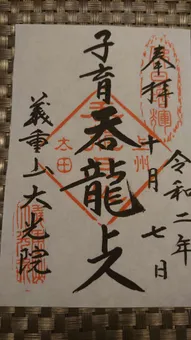 奉拝
令和二年
十月七日
子育呑龍上人
太田
義重山大光院